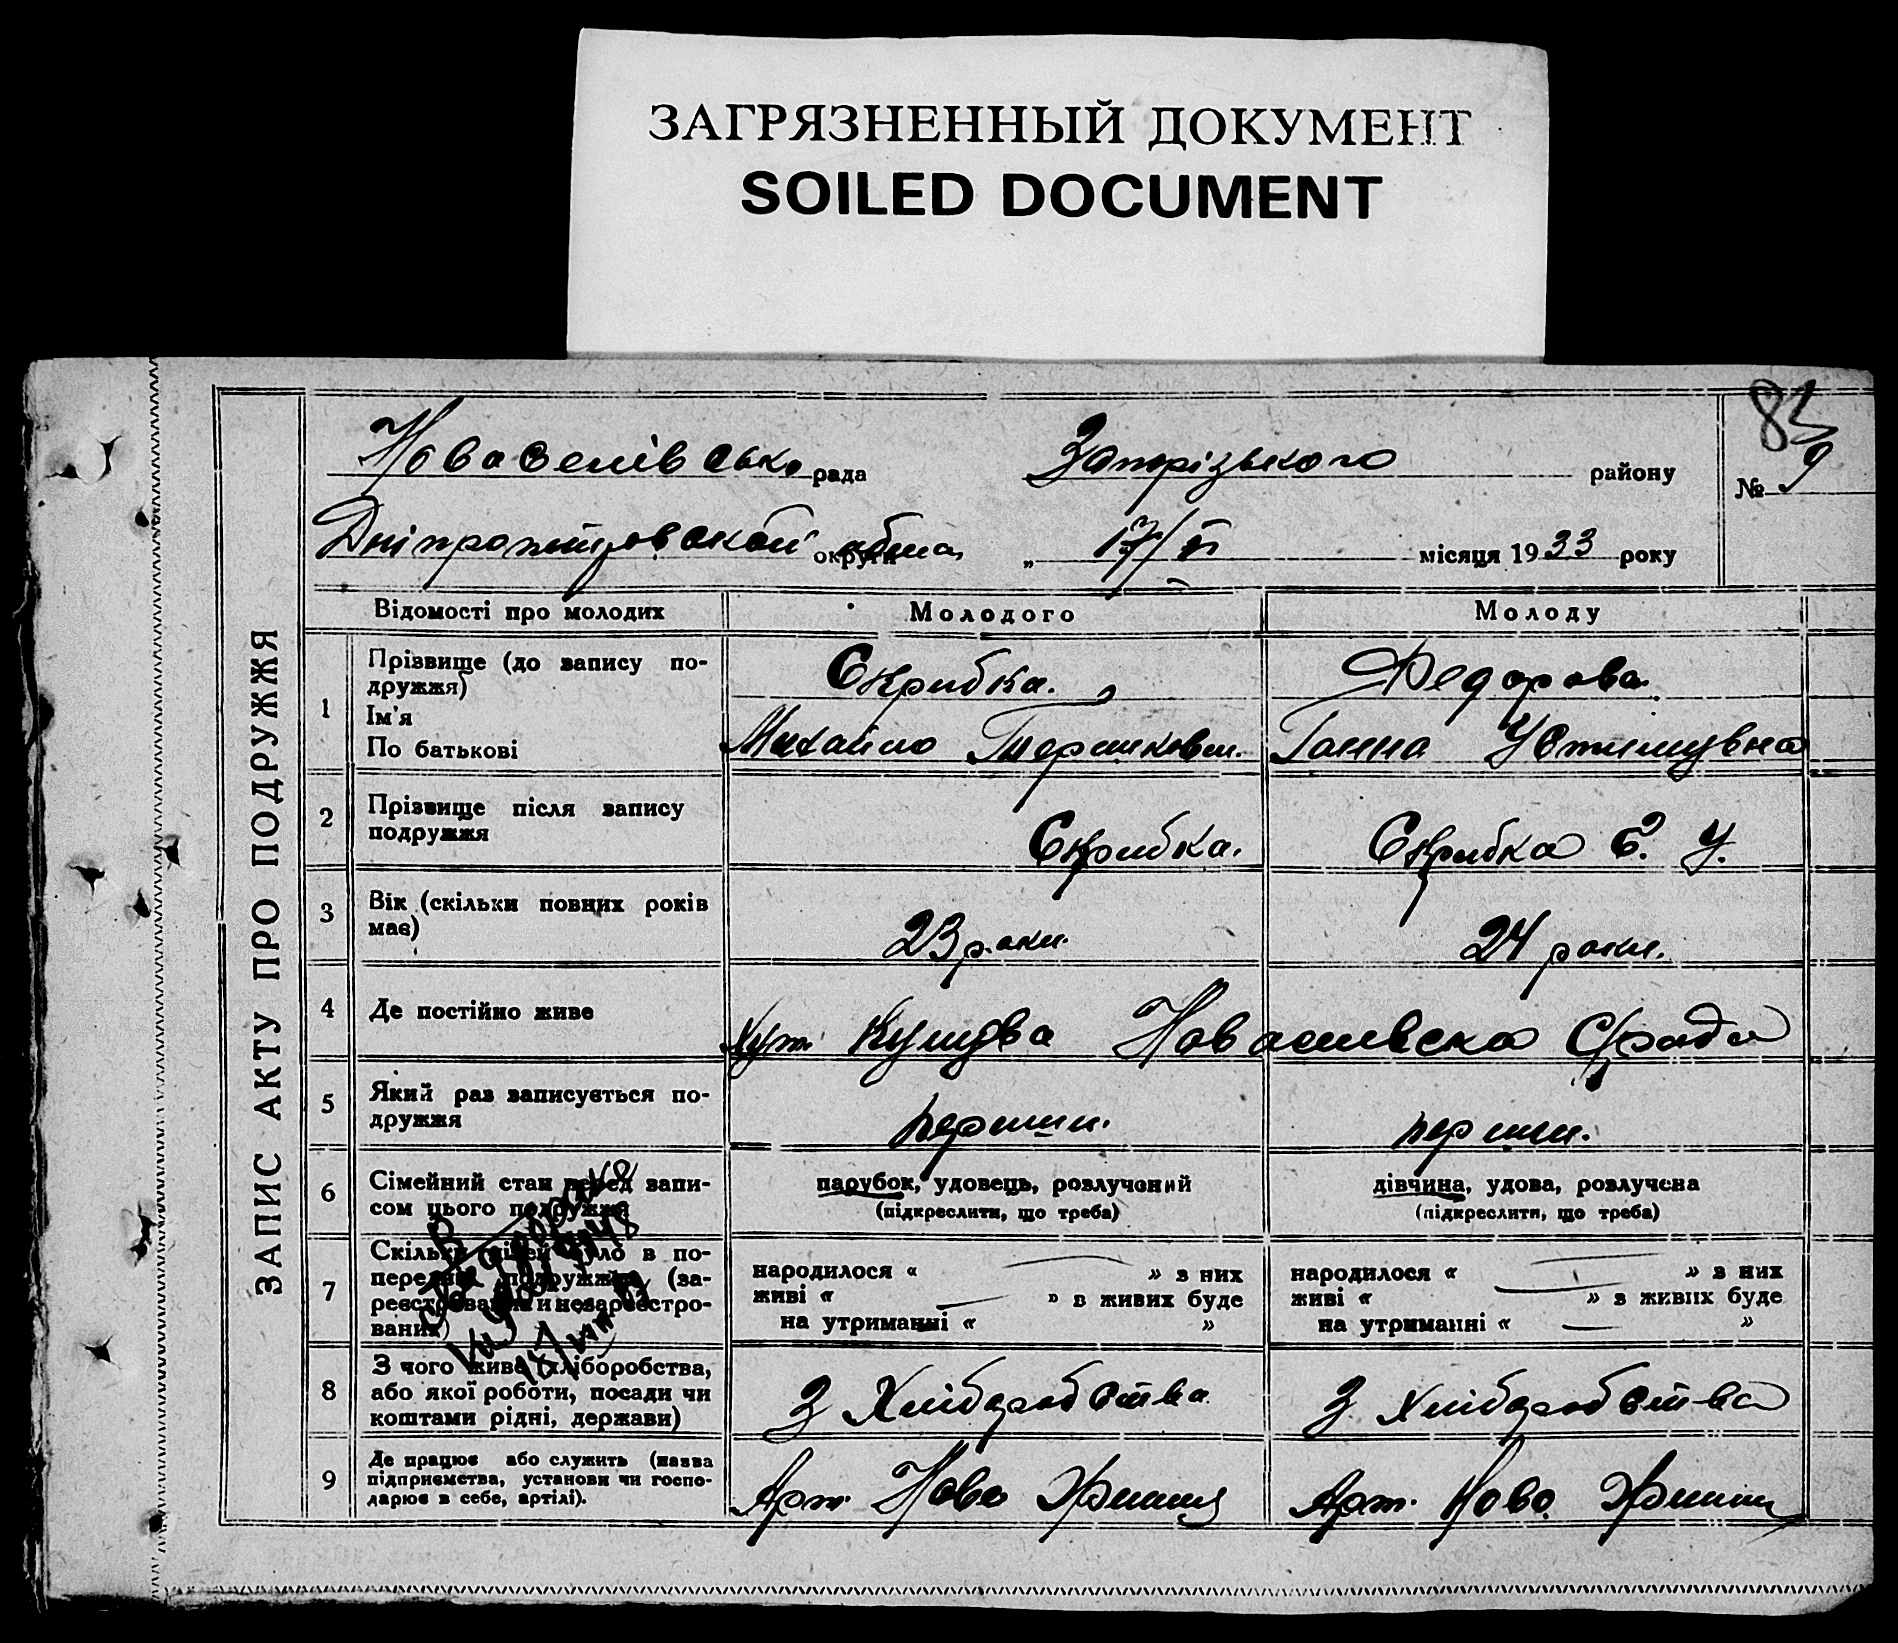 ЗАГРЯЗНЕННЫЙ ДОКУМЕНТ
SOILED DOCUMENT
83
рада Запорізького району № 9
округи 17/ місяця 1933 року
ЗАПИС АКТУ ПРО ПОДРУЖЖЯ
Відомості про молодих Молодого Молоду
1 Прізвище (до запису по-
дружжя) Скрибка. Федорова
Ім'я
По батькові Михайло Ганна
2 Прізвище після запису
подружжя Скрибка. Скрибка У.
3 Вік (скільки повних років
має) 23 роки. 24 роки.
4 Де постійно живе хут.
5 Який раз записується по-
дружжя перши. перши.
6 Сімейний стан перед запи-
сом цього подружжя
парубок, удовець, розлучений
(підкреслити, що треба)
дівчина, удова, розлучена
(підкреслити, що треба)
7 Скільки дітей було в по-
передніх подружжях (за-
реєстрованих и незареєстро-
ваних)
народилося « » з них
живі « » в живих буде
на утриманні « »
народилося « » з них
живі « » з живих буде
на утриманні « »
8 З чого живе (хліборобства,
або якої роботи, посади чи
коштами рідні, держави)
З Хліборобства З Хліборобства
9 Де працює або служить (назва
підприємства, установи чи госпо-
дарює в себе, артілі).
Арт. Ново Арт. Ново